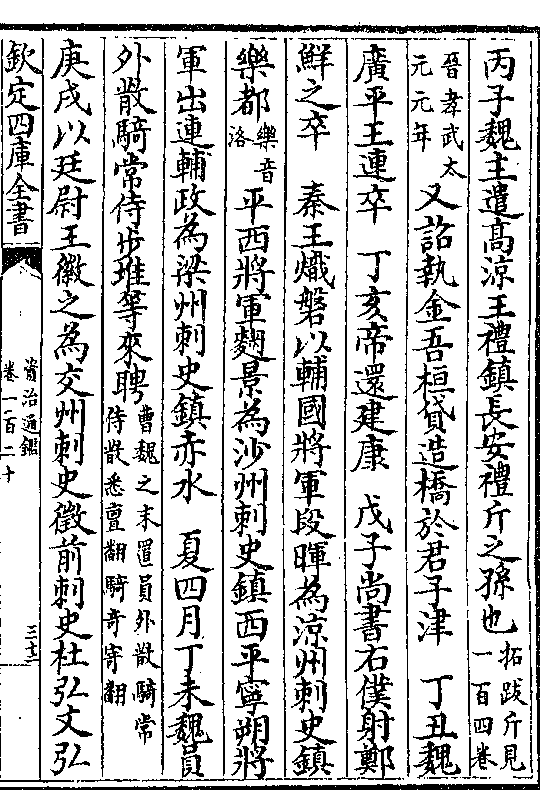 丙子魏主遣高涼王禮鎮長安禮斤之孫也拓跋斤見一百四卷
晉孝武太元元年又詔執金吾桓貸造橋於君子津　丁丑魏
廣平王連卒　丁亥帝還建康　戊子尚書右僕射鄭
鮮之卒　秦王熾磐以輔國將軍段暉為涼州刺史鎮
樂都樂音洛平西將軍麴景為沙州刺史鎮西平寧朔將
軍出連輔政為梁州刺史鎮赤水　夏四月丁未魏員
外散騎常侍步堆等來聘曹魏之末置員外散騎常侍散悉亶翻騎奇寄翻
庚戌以廷尉王徽之為交州刺史徵前刺史杜弘文弘
欽定四庫全書
資治通鑑
卷一百二十